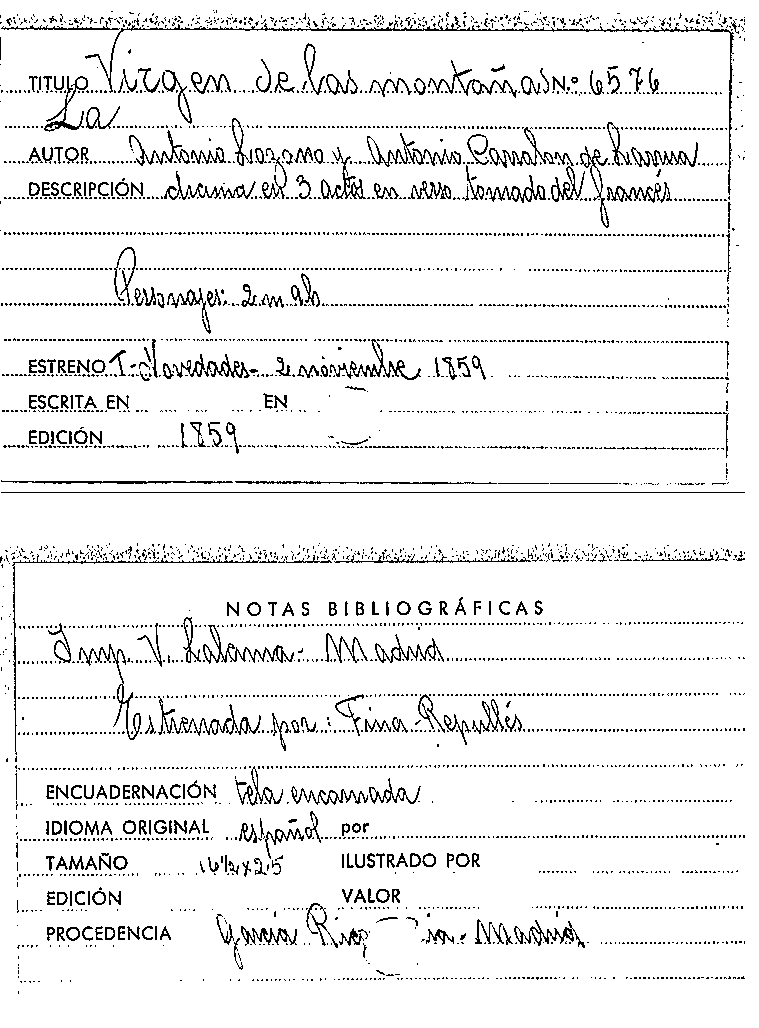 TITULO Virgen de las montañas N.º 6576
La
AUTOR Antonio Lozano y Antonio Carralon de Larrua
DESCRIPCIÓN drama en 3 actos en verso tomado del francés
Personajes: 2 m 9 h
ESTRENO T- Novedades- 2 noviembre 1859
ESCRITA EN EN
EDICIÓN 1859
NOTAS BIBLIOGRÁFICAS
Imp V. Lalama- Madrid
Estrenada por: Fina-Repullés
ENCUADERNACIÓN tela encarnada
IDIOMA ORIGINAL español por
TAMAÑO 16½x25 ILUSTRADO POR
EDICIÓN VALOR
PROCEDENCIA García Rico - Madrid